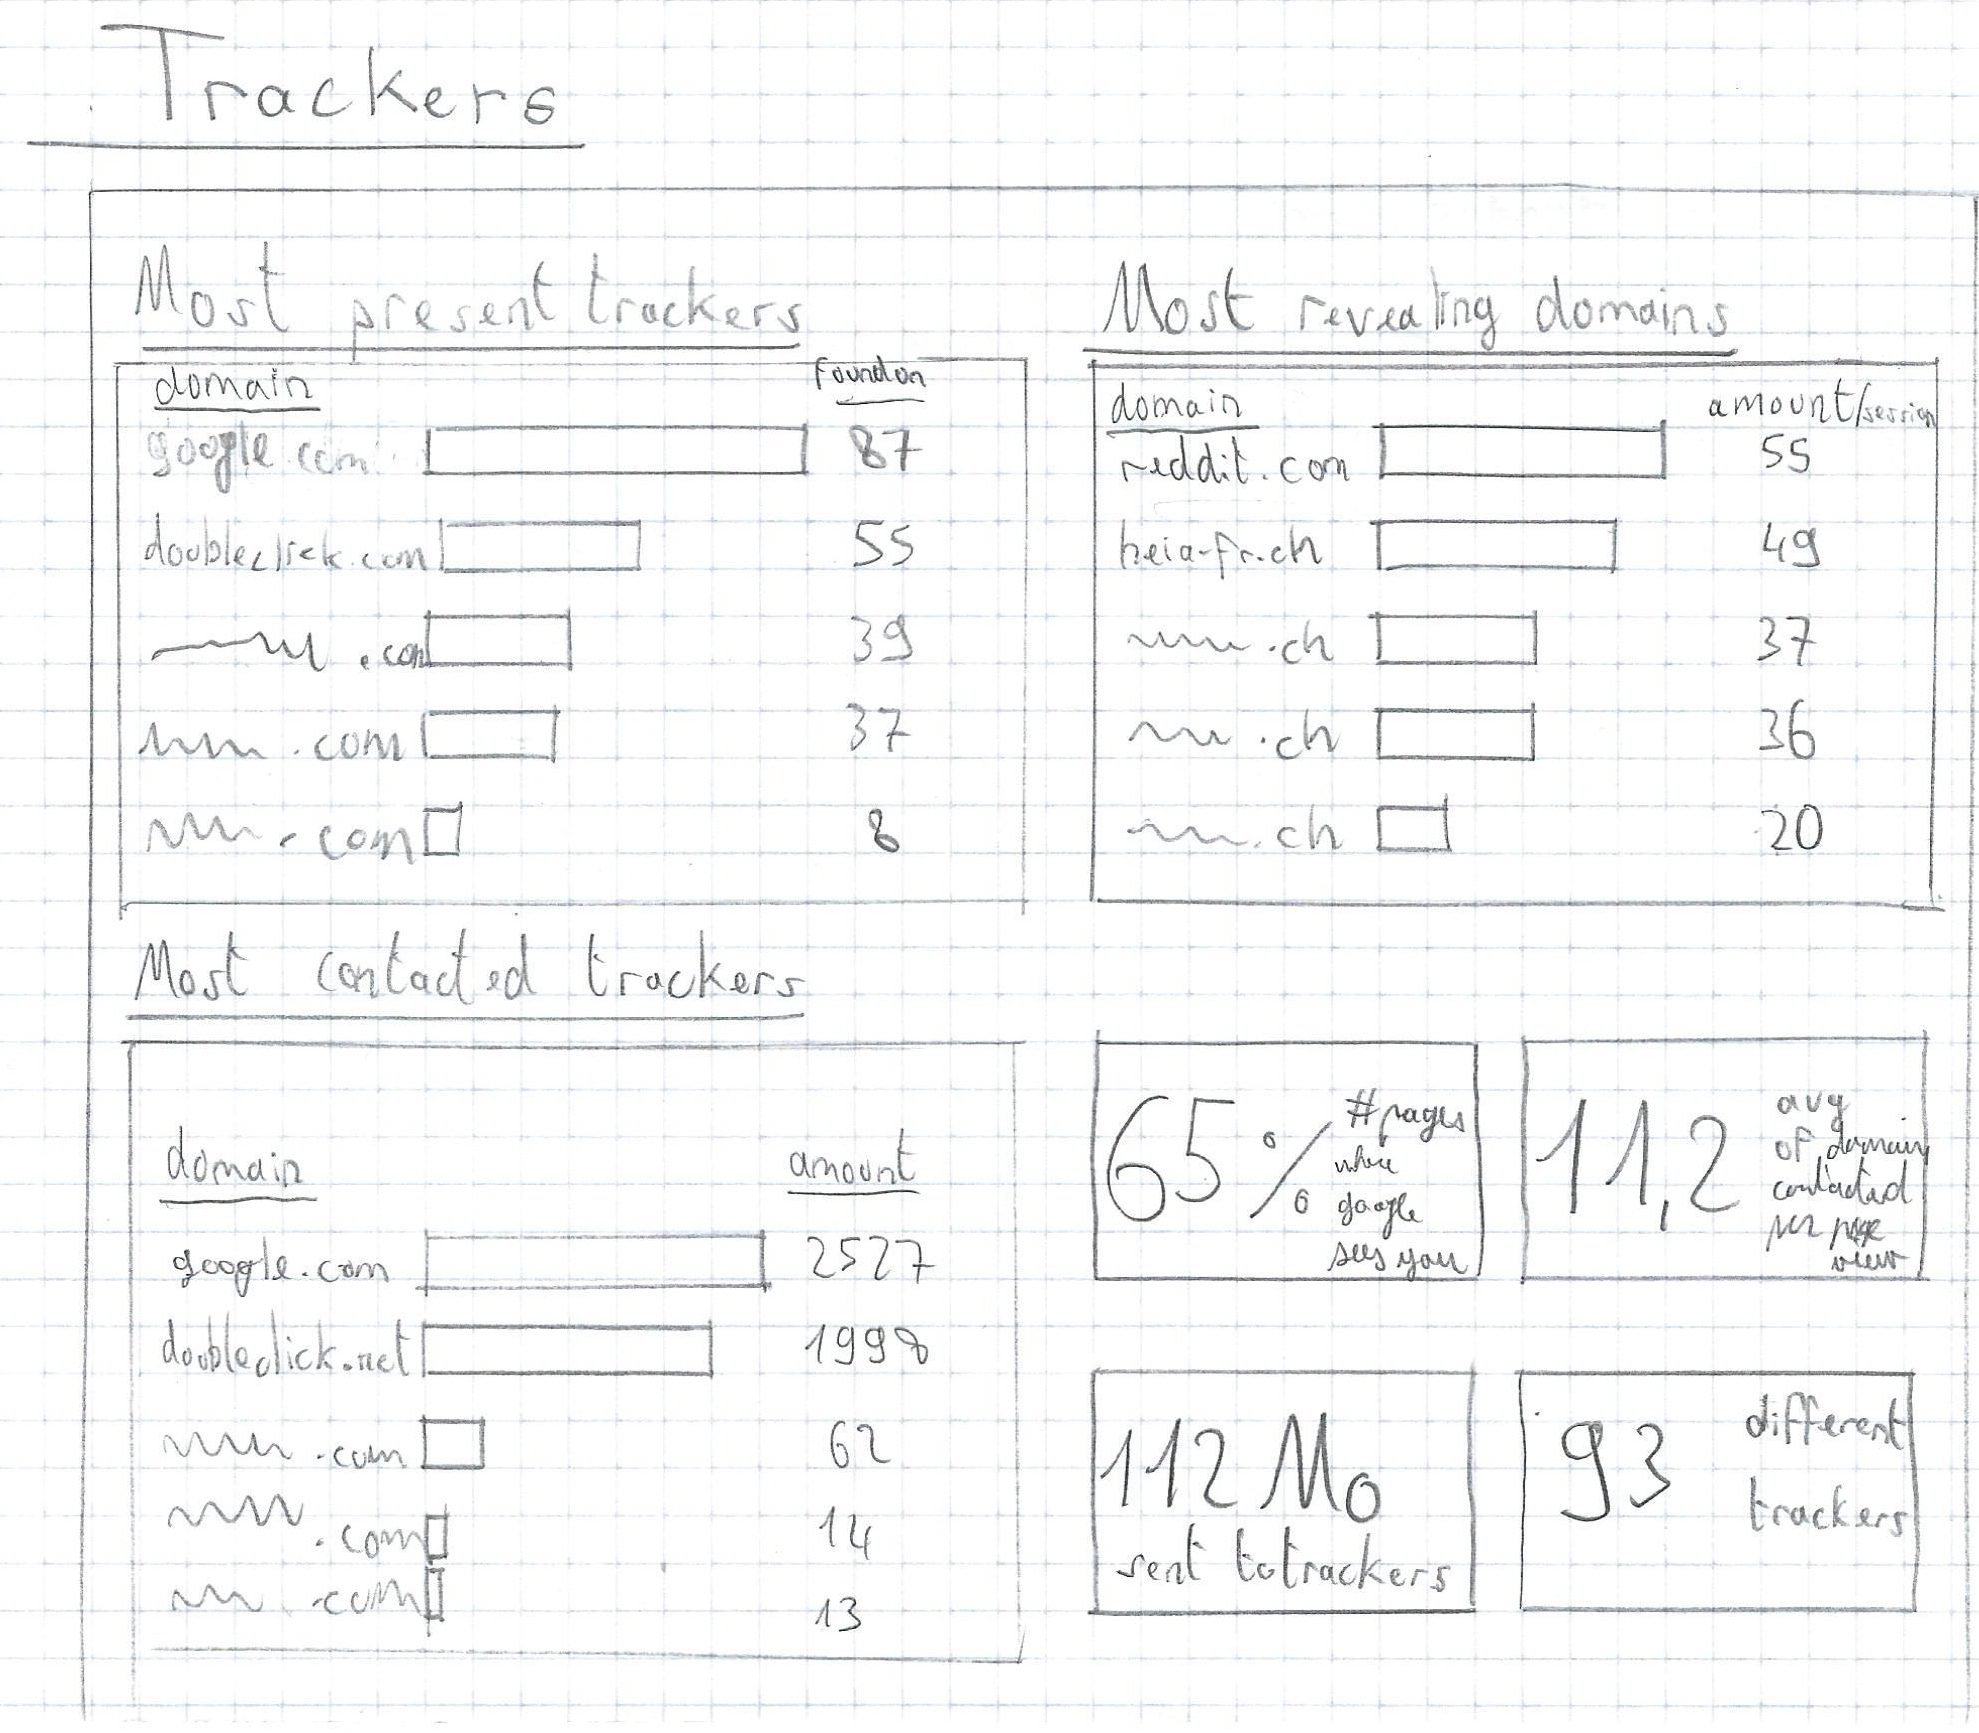 Trackers
Most present trackers
domain found on
google.com 87
doubleclick.com 55
.com 39
.com 37
.com 8
Most revealing domains
domain amount/session
reddit.com 55
heia-fr.ch 49
.ch 37
.ch 36
.ch 20
Most contacted trackers
domain amount
google.com 2527
doubleclick.net 1998
.com 62
.com 14
.com 13
65 % #pages
where
google
sees you
11,2 avg
of domain
contacted
per page
view
112 Mo
sent to trackers
93 different
trackers